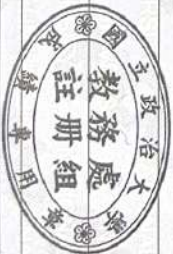 國立政治大學
教務處
註冊組
成績專用章